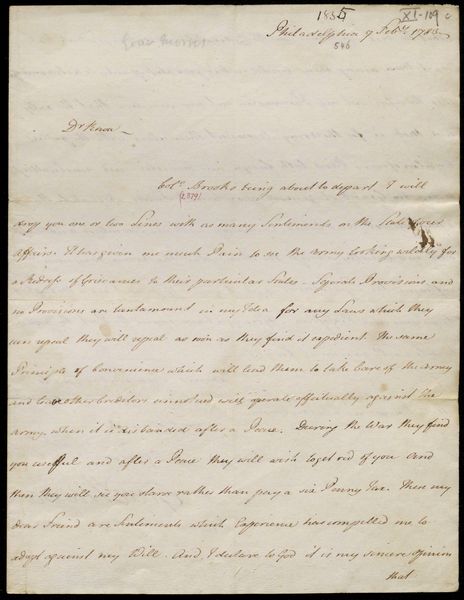 1835
XI-109
Philadelphia 7 Feby. 1783
546
Dr Knox
Colo. Brooks being about to depart I will
(2379)
drop you one or two Lines with as many Sentiments on the State of our
affairs. It has given me much Pain to see the army looking wildly for
a Redress of Grievances to their particular States. Separate Provisions and
no Provisions are tantamount in my Idea for any Laws which they
can repeal they will repeal as soon as they find it expedient. The same
Principle of Convenience which will lead them to take Care of the army
and leave other Creditors unnoticed will operate effectually against the
army, when it is disbanded after a Peace. During the War they find
you useful and after a Peace they will wish to get rid of you and
then they will see you starve rather than pay a six Penny Tax. These my
dear Friend are Sentiments which Experience has compelled me to
adopt against my Will. And I declare to God it is my sincere opinion
that